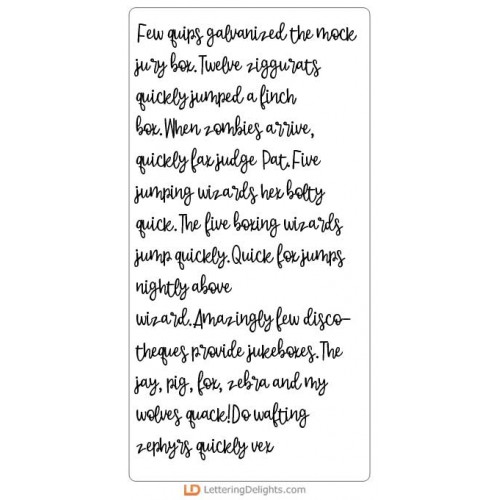 Few quips galvanized the mock
jury box.Twelve ziggurats
quickly jumped a finch
box.When zombies arrive,
quickly fax judge Pat.Five
jumping wizards hex bolty
quick.The five boxing wizards
jump quickly.Quick fox jumps
nightly above
wizard.Amazingly few disco–
theques provide jukeboxes.The
jay, pig, fox, zebra and my
wolves quack!Do wafting
zephyrs quickly vex
LD LetteringDelights.com